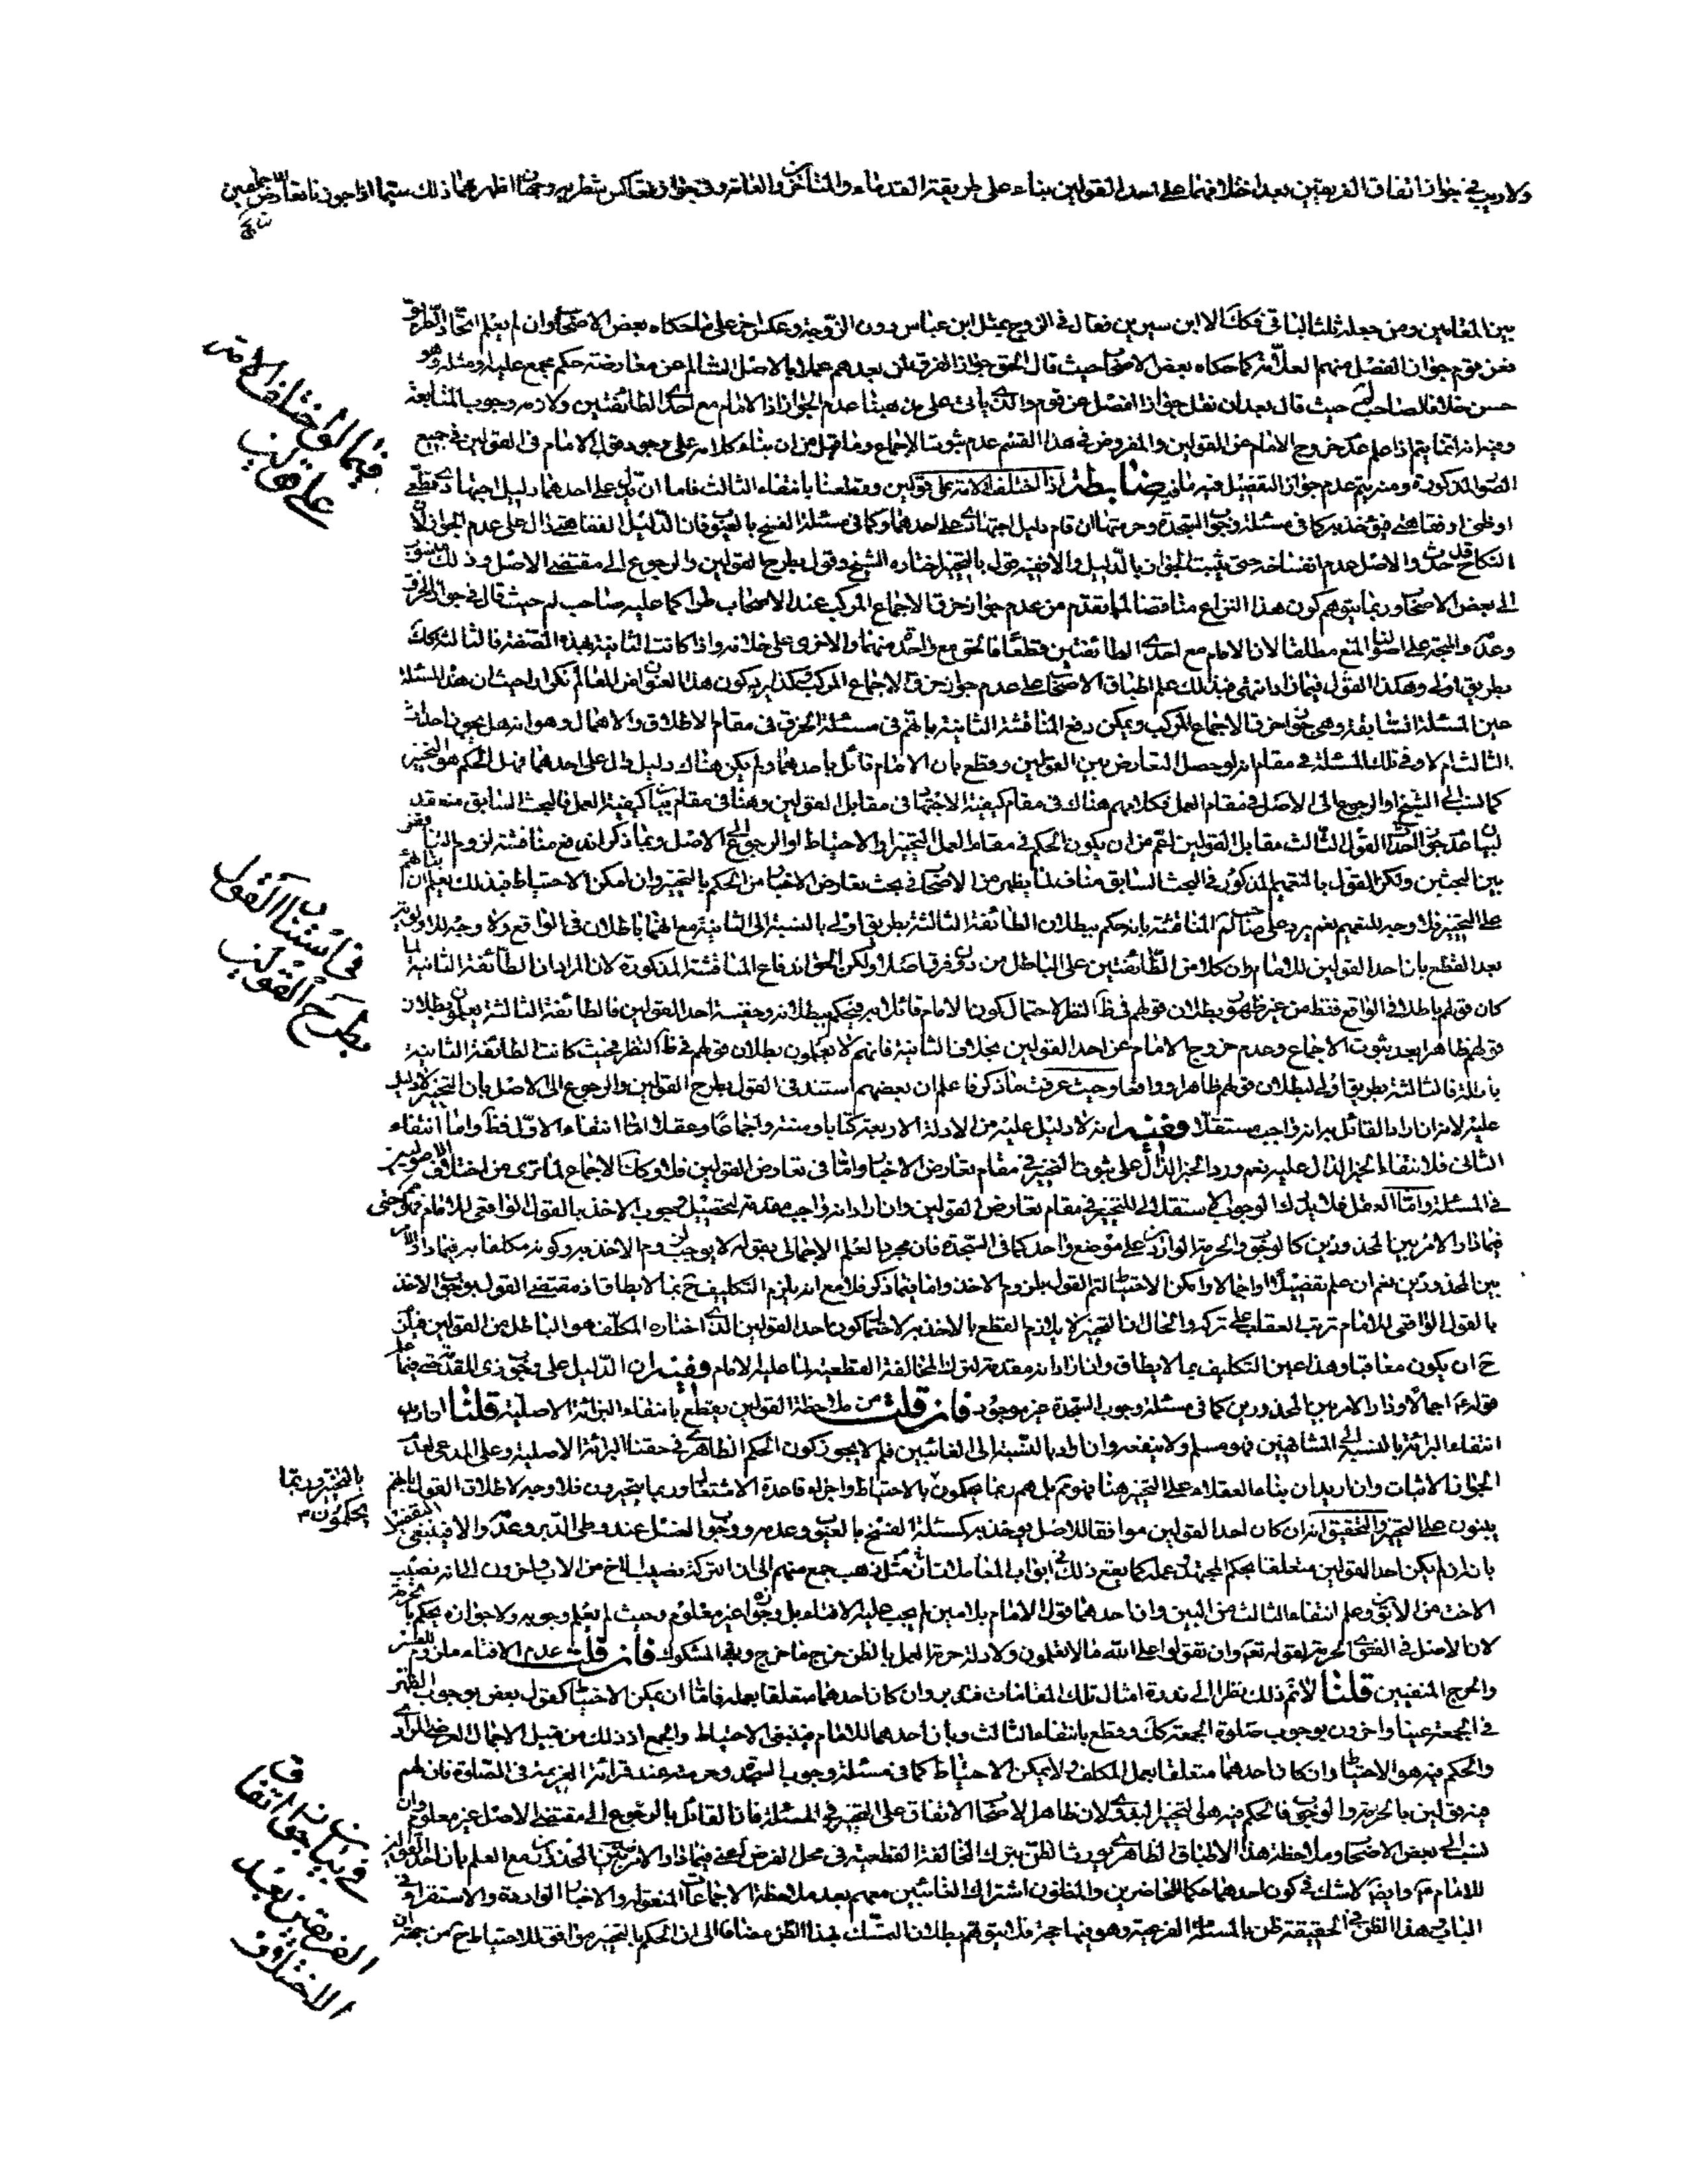 ولا ريب في جواز اتفاق الفريقين بعد اختلافهما على احد القولين بناء على طريقة القدماء والمتأخرين والعامة وفي جواز تعاكس شطريه وجهان اظهرهما ذلك سيما اذا جوزنا تعارض
بين المقامين ومن جعله ثلث الباقي فكك الا ابن سيرين فقال في الزوج بمثل ابن عباس دون الزوجة وعكس اخر على ما حكاه بعض الاصحاب وان لم يعلم اتحاد
فعن قوم جواز الفصل منهم العلامة كما حكاه بعض الاصحاب حيث قال الحق جواز الفرق لمن بعدهم عملا بالاصل السالم عن معارضة حكم مجمع عليه او مثله وهو
حسن خلافا لصاحب لم حيث قال بعد ان نقل جواز الفصل عن قوم والذي ياتي على مذهبنا عدم الجواز اذ الامام مع احدى الطائفتين ولازمه وجوب المتابعة
وفيه انه انما يتم اذا علم عدم خروج الامام عن القولين والمفروض في هذا القسم عدم ثبوت الاجماع وما قيل من ان بناء كلامه على وجود قول الامام في القولين في جميع
الصور المذكورة ومنه يتم عدم جواز التفصيل فيه ما فيه ضابطة اذا اختلف الامة على قولين وقطعنا بانتفاء الثالث فاما ان دل على احدهما دليل اجتهادي قطعي
او ظني او فقاهتي فيؤخذ به كما في مسئلة وجوب السجدة وحرمتها ان قام دليل اجتهادي على احدهما وكما في مسئلة الفسخ بالعيوب فان الدليل الفقاهتي دال على عدم الجواز لان
النكاح قد حدث والاصل عدم انفساخه حتى يثبت الجواز بالدليل والا ففيه قول بالتخيير اختاره الشيخ وقول بطرح القولين والرجوع الى مقتضى الاصل وذلك منسوب
الى بعض الاصحاب وربما يتوهم كون هذا النزاع مناقضا لما تقدم من عدم جواز خرق الاجماع المركب عند الاصحاب طرا كما عليه صاحب لم حيث قال في جواز الخرق
وعدمه والمتجه على اصولنا المنع مطلقا لان الامام مع احدى الطائفتين قطعا فالحق مع واحدة منهما والاخرى على خلافه واذا كانت الثانية بهذه الصفة فالثالثة كك
بطريق اولى وهكذا القول فيما زاد انتهى فبذلك علم اطباق الاصحاب على عدم جواز خرق الاجماع المركب
عين المسئلة السابقة وهي جواز خرق الاجماع المركب ويمكن دفع المناقشة الثانية بانهم في مسئلة الخرق في مقام الاطلاق والاهمال وهو انه هل يجوز احداث
الثالث ام لا وفي تلك المسئلة في مقام انه لو حصل التعارض بين القولين وقطع بان الامام قائل باحدهما ولم يكن هناك دليل دال على احدهما فهل الحكم هو التخيير
كما نسب الى الشيخ او الرجوع الى الاصل في مقام العمل فكلامهم هناك في مقام كيفية الاجتهاد في مقابل القولين وهنا في مقام بيان كيفية العمل فالبحث السابق منعقد
لبيان عدم جواز احداث القول الثالث مقابل القولين اعم من ان يكون الحكم في مقام العمل التخيير او الاحتياط او الرجوع الى الاصل وبما ذكر اندفع مناقشة لزوم
بين البحثين ولكن القول بالتعميم المذكور في البحث السابق مناف لما يظهر من الاصحاب في بحث تعارض الاخبار من الحكم بالتخيير وان امكن الاحتياط فبذلك يعلم ان بنائهم
على التخيير فلا وجه للتعميم نعم يرد على صاحب لم المناقشة بانه حكم ببطلان الطائفة الثالثة بطريق اولى بالنسبة الى الثانية مع انهما باطلان في الواقع ولا وجه للاولوية
بعد القطع بان احد القولين للامام وان كلا من الطائفتين على الباطل من دون فرق اصلا ولكن الحق اندفاع المناقشة المذكورة لان المراد ان الطائفة الثانية لما
كان قولهم باطلا في الواقع فقط من غير ظهور بطلان قولهم في ظاهر النظر لاحتمال كون الامام قائلا به فيحكم ببطلانه وحقية احد القولين فالطائفة الثالثة يعلمون بطلان
قولهم ظاهرا بعد ثبوت الاجماع وعدم خروج الامام عن احد القولين بخلاف الثانية فانهم لا يعلمون بطلان قولهم في ظاهر النظر فحيث كانت الطائفة الثانية
باطلة فالثالثة بطريق اولى لبطلان قولهم ظاهرا وواقعا وحيث عرفت ما ذكر فاعلم ان بعضهم استند في القول بطرح القولين والرجوع الى الاصل بان التخيير لا دليل
عليه لانه ان اراد القائل به انه واجب مستقلا ففيه انه لا دليل عليه من الادلة الاربعة كتابا وسنة واجماعا وعقلا اما انتفاء الاول فظ واما انتفاء
الثاني فلانتفاء الخبر الدال عليه نعم ورد الخبر الدال على ثبوت التخيير في مقام تعارض الاخبار واما في تعارض القولين فلا وكذا الاجماع لما ترى من اختلاف الاصوليين
في المسئلة واما العقل فلا يدرك الوجوب الاستقلالي للتخيير في مقام تعارض القولين وان اراد انه واجب مقدمة لتحصيل وجوب الاخذ بالقول الواقعي للامام فهو حتى
فيما دار الامر بين المحذورين كالوجوب والحرمة الواردين على موضع واحد كما في السجدة فان مجرد العلم الاجمالي بقوله لا يوجب لزوم الاخذ به وكونه مكلفا به فيما دار الامر
بين المحذورين نعم ان علم تفصيلا او اجمالا وامكن الاحتياط لتم القول بلزوم الاخذ واما فيما ذكر فلا مع انه يلزم التكليف ح بما لا يطاق اذ مقتضى القول بوجوب الاخذ
بالقول الواقعي للامام ترتب العقاب على تركه والحال ان التخيير لا يلازم القطع بالاخذ به لاحتمال كون احد القولين الذي اختاره المكلف هو الباطل من القولين
ح ان يكون معاقبا وهذا عين التكليف بما لا يطاق وان اراد انه مقدمة لترك المخالفة القطعية لما عليه الامام ففيه ان الدليل على وجوب ذي المقدمة فيما علم
قوله ع اجمالا ودار الامر بين المحذورين كما في مسئلة وجوب السجدة غير موجود فان قلت من ملاحظة القولين يقطع بانتفاء البرائة الاصلية قلنا ان اريد
انتفاء البرائة بالنسبة الى المشافهين فهو مسلم ولا ينفعه وان اراد بالنسبة الى الغائبين فلم لا يجوز كون الحكم الظاهري في حقنا البرائة الاصلية وعلى المدعي لعدم
الجواز الاثبات وان اريد ان بناء العقلاء على التخيير هنا فهو مم بل هم ربما يحكمون بالاحتياط واجراء قاعدة الاشتغال وربما يتخيرون فلا وجه لاطلاق القول بانهم
يبنون على التخيير والتحقيق انه ان كان احد القولين موافقا للاصل يؤخذ به كمسئلة الفسخ بالعيوب وعدمه ووجوب الغسل عند وطي الدبر وعدمه والا فينبغي التفصيل
بانه ان لم يكن احد القولين متعلقا بحكم المجتهد عمله كما يقع ذلك في ابواب المعاملات مثل ذهب جمع منهم الى ان التركة نصيب الاخ من الاب واخرون الى انه نصيب
الاخت من الابوين وعلم انتفاء الثالث من البين وان احدهما قول الامام بلا مين لم يجب عليه الافتاء بل وجوازه غير معلوم وحيث لم يعلم وجوبه ولا جوازه يحكم بالحرمة
لان الاصل في الفتوى الحرمة لقوله تعالى وان تقولوا على الله ما لا تعلمون ولادلة حرمة العمل بالظن خرج ما خرج وبقي المشكوك فان قلت عدم الافتاء ملزوم للعسر
والحرج المنفيين قلنا لا نم ذلك نظرا الى ندرة امثال تلك المقامات فتدبر وان كان احدهما متعلقا بعمله فاما ان يمكن الاحتياط كقول بعض بوجوب الظهر
في الجمعة عينا واخرون بوجوب صلوة الجمعة كك وقطع بانتفاء الثالث وبان احدهما للامام فينبغي الاحتياط والجمع اذ ذلك من قبيل الاجمال العرضي المرادي
والحكم فيه هو الاحتياط وان كان احدهما متعلقا بعمل المكلف ولا يمكن الاحتياط كما في مسئلة وجوب السجود وحرمته عند قرائة العزيمة في الصلوة فان لهم
فيه قولين بالحرمة والوجوب فالحكم فيه هو التخيير البدوي لان ظاهر الاصحاب الاتفاق على التخيير في المسئلة فان القائل بالرجوع الى مقتضى الاصل غير معلوم وان
نسب الى بعض الاصحاب وملاحظة هذا الاطباق الظاهري يورث الظن بترك المخالفة القطعية في محل الفرض اعني فيما دار الامر بين المحذورين مع العلم بان احد القولين
للامام ع وايضا لا شك في كون احدهما حكما للحاضرين والمظنون اشتراك الغائبين معهم بعد ملاحظة الاجماعات المنقولة والاخبار الواردة والاستقراء في
الباب هذا الظن في الحقيقة ظن بالمسئلة الفرعية وهو فيها حجة فلا يتوهم بطلان التمسك بهذا الظن مضافا الى ان الحكم بالتخيير موافق للاحتياط ح من جهة ان
فيما لو اختلف الامة
على قولين
في استناد القول
بطرح القولين
بالتخيير وربما
يحكمون
في بيان جواز اتفاق
الفريقين بعد
الاختلاف